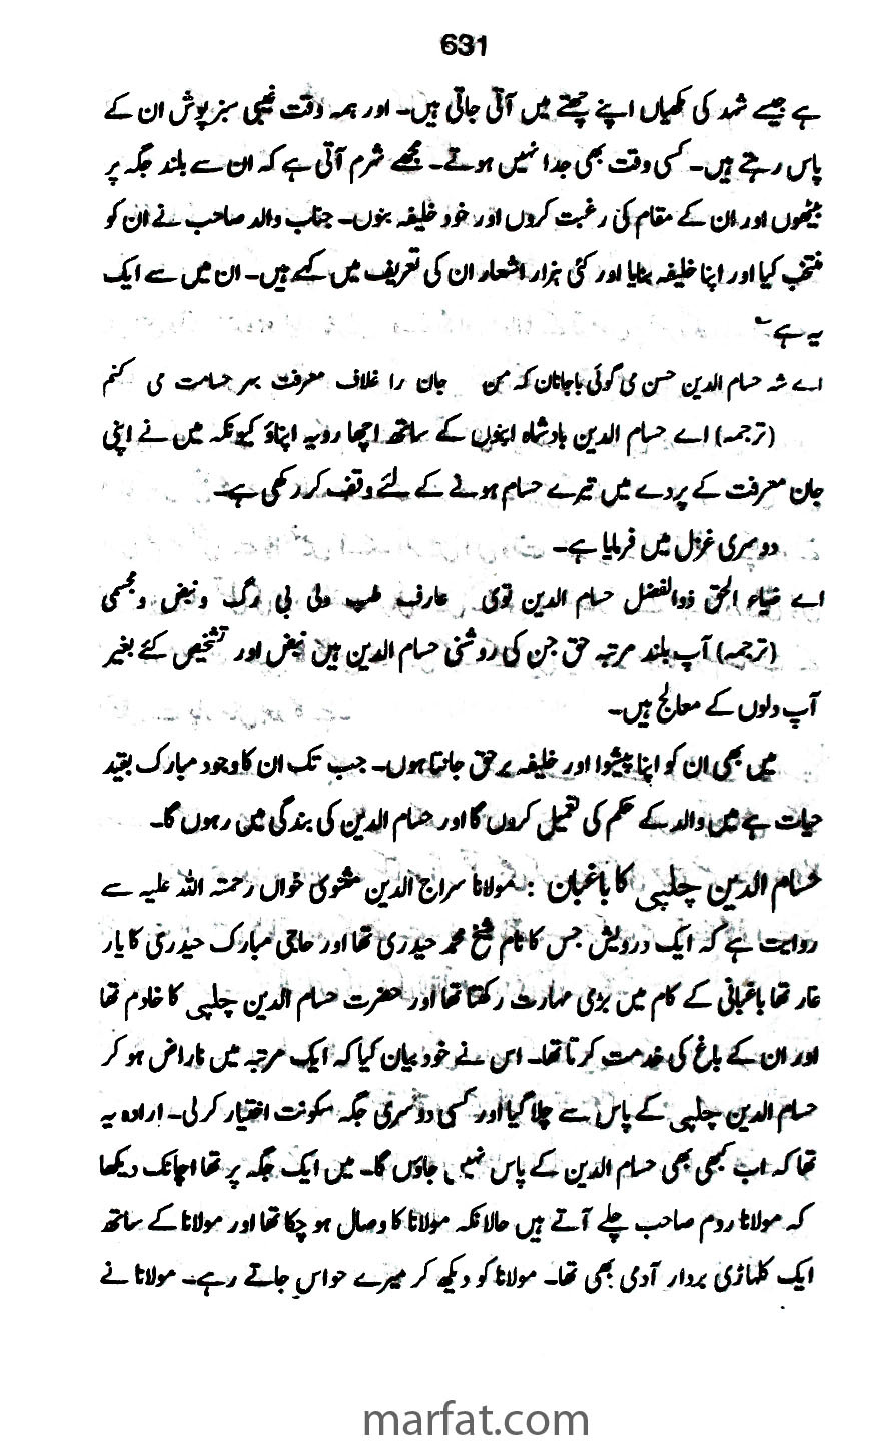 631
ہے جیسے شہد کی مکھیاں اپنے چھتے میں آتی جاتی ہیں۔ اور ہمہ وقت غیبی سبز پوش ان کے
پاس رہتے ہیں۔ کسی وقت بھی جدا نہیں ہوتے۔ مجھے شرم آتی ہے کہ ان سے بلند جگہ پر
بیٹھوں اور ان کے مقام کی رغبت کروں اور خود خلیفہ بنوں۔ جناب والد صاحب نے ان کو
منتخب کیا اور اپنا خلیفہ بنایا اور کئی ہزار اشعار ان کی تعریف میں کہے ہیں۔ ان میں سے ایک
یہ ہے ؎
اے شہ حسام الدین حسن می گوئی باجانان کہ من جان را غلاف معرفت بہر حسامت می کنم
(ترجمہ) اے حسام الدین بادشاہ اپنوں کے ساتھ اچھا رویہ اپناؤ کیونکہ میں نے اپنی
جان معرفت کے پردے میں تیرے حسام ہونے کے لئے وقف کر رکھی ہے۔
دوسری غزل میں فرمایا ہے۔
اے ضیاء الحق ذوالفضل حسام الدین توی عارف طب دلی بی رگ و نبض و مجسمی
(ترجمہ) آپ بلند مرتبہ حق جن کی روشنی حسام الدین ہیں نبض اور تشخیص کئے بغیر
آپ دلوں کے معالج ہیں۔
میں بھی ان کو اپنا پیشوا اور خلیفہ برحق جانتا ہوں۔ جب تک ان کا وجود مبارک بقید
حیات ہے میں والد کے حکم کی تعمیل کروں گا اور حسام الدین کی بندگی میں رہوں گا۔
حسام الدین چلپی کا باغبان : مولانا سراج الدین مثنوی خواں رحمتہ اللہ علیہ سے
روایت ہے کہ ایک درویش جس کا نام شیخ محمد حیدری تھا اور حاجی مبارک حیدری کا یار
غار تھا باغبانی کے کام میں بڑی مہارت رکھتا تھا اور حضرت حسام الدین چلپی کا خادم تھا
اور ان کے باغ کی خدمت کرتا تھا۔ اس نے خود بیان کیا کہ ایک مرتبہ میں ناراض ہو کر
حسام الدین چلپی کے پاس سے چلا گیا اور کسی دوسری جگہ سکونت اختیار کر لی۔ ارادہ یہ
تھا کہ اب کبھی بھی حسام الدین کے پاس نہیں جاؤں گا۔ میں ایک جگہ پر تھا اچانک دیکھا
کہ مولانا روم صاحب چلے آتے ہیں حالانکہ مولانا کا وصال ہو چکا تھا اور مولانا کے ساتھ
ایک کلہاڑی بردار آدمی بھی تھا۔ مولانا کو دیکھ کر میرے حواس جاتے رہے۔ مولانا نے
marfat.com